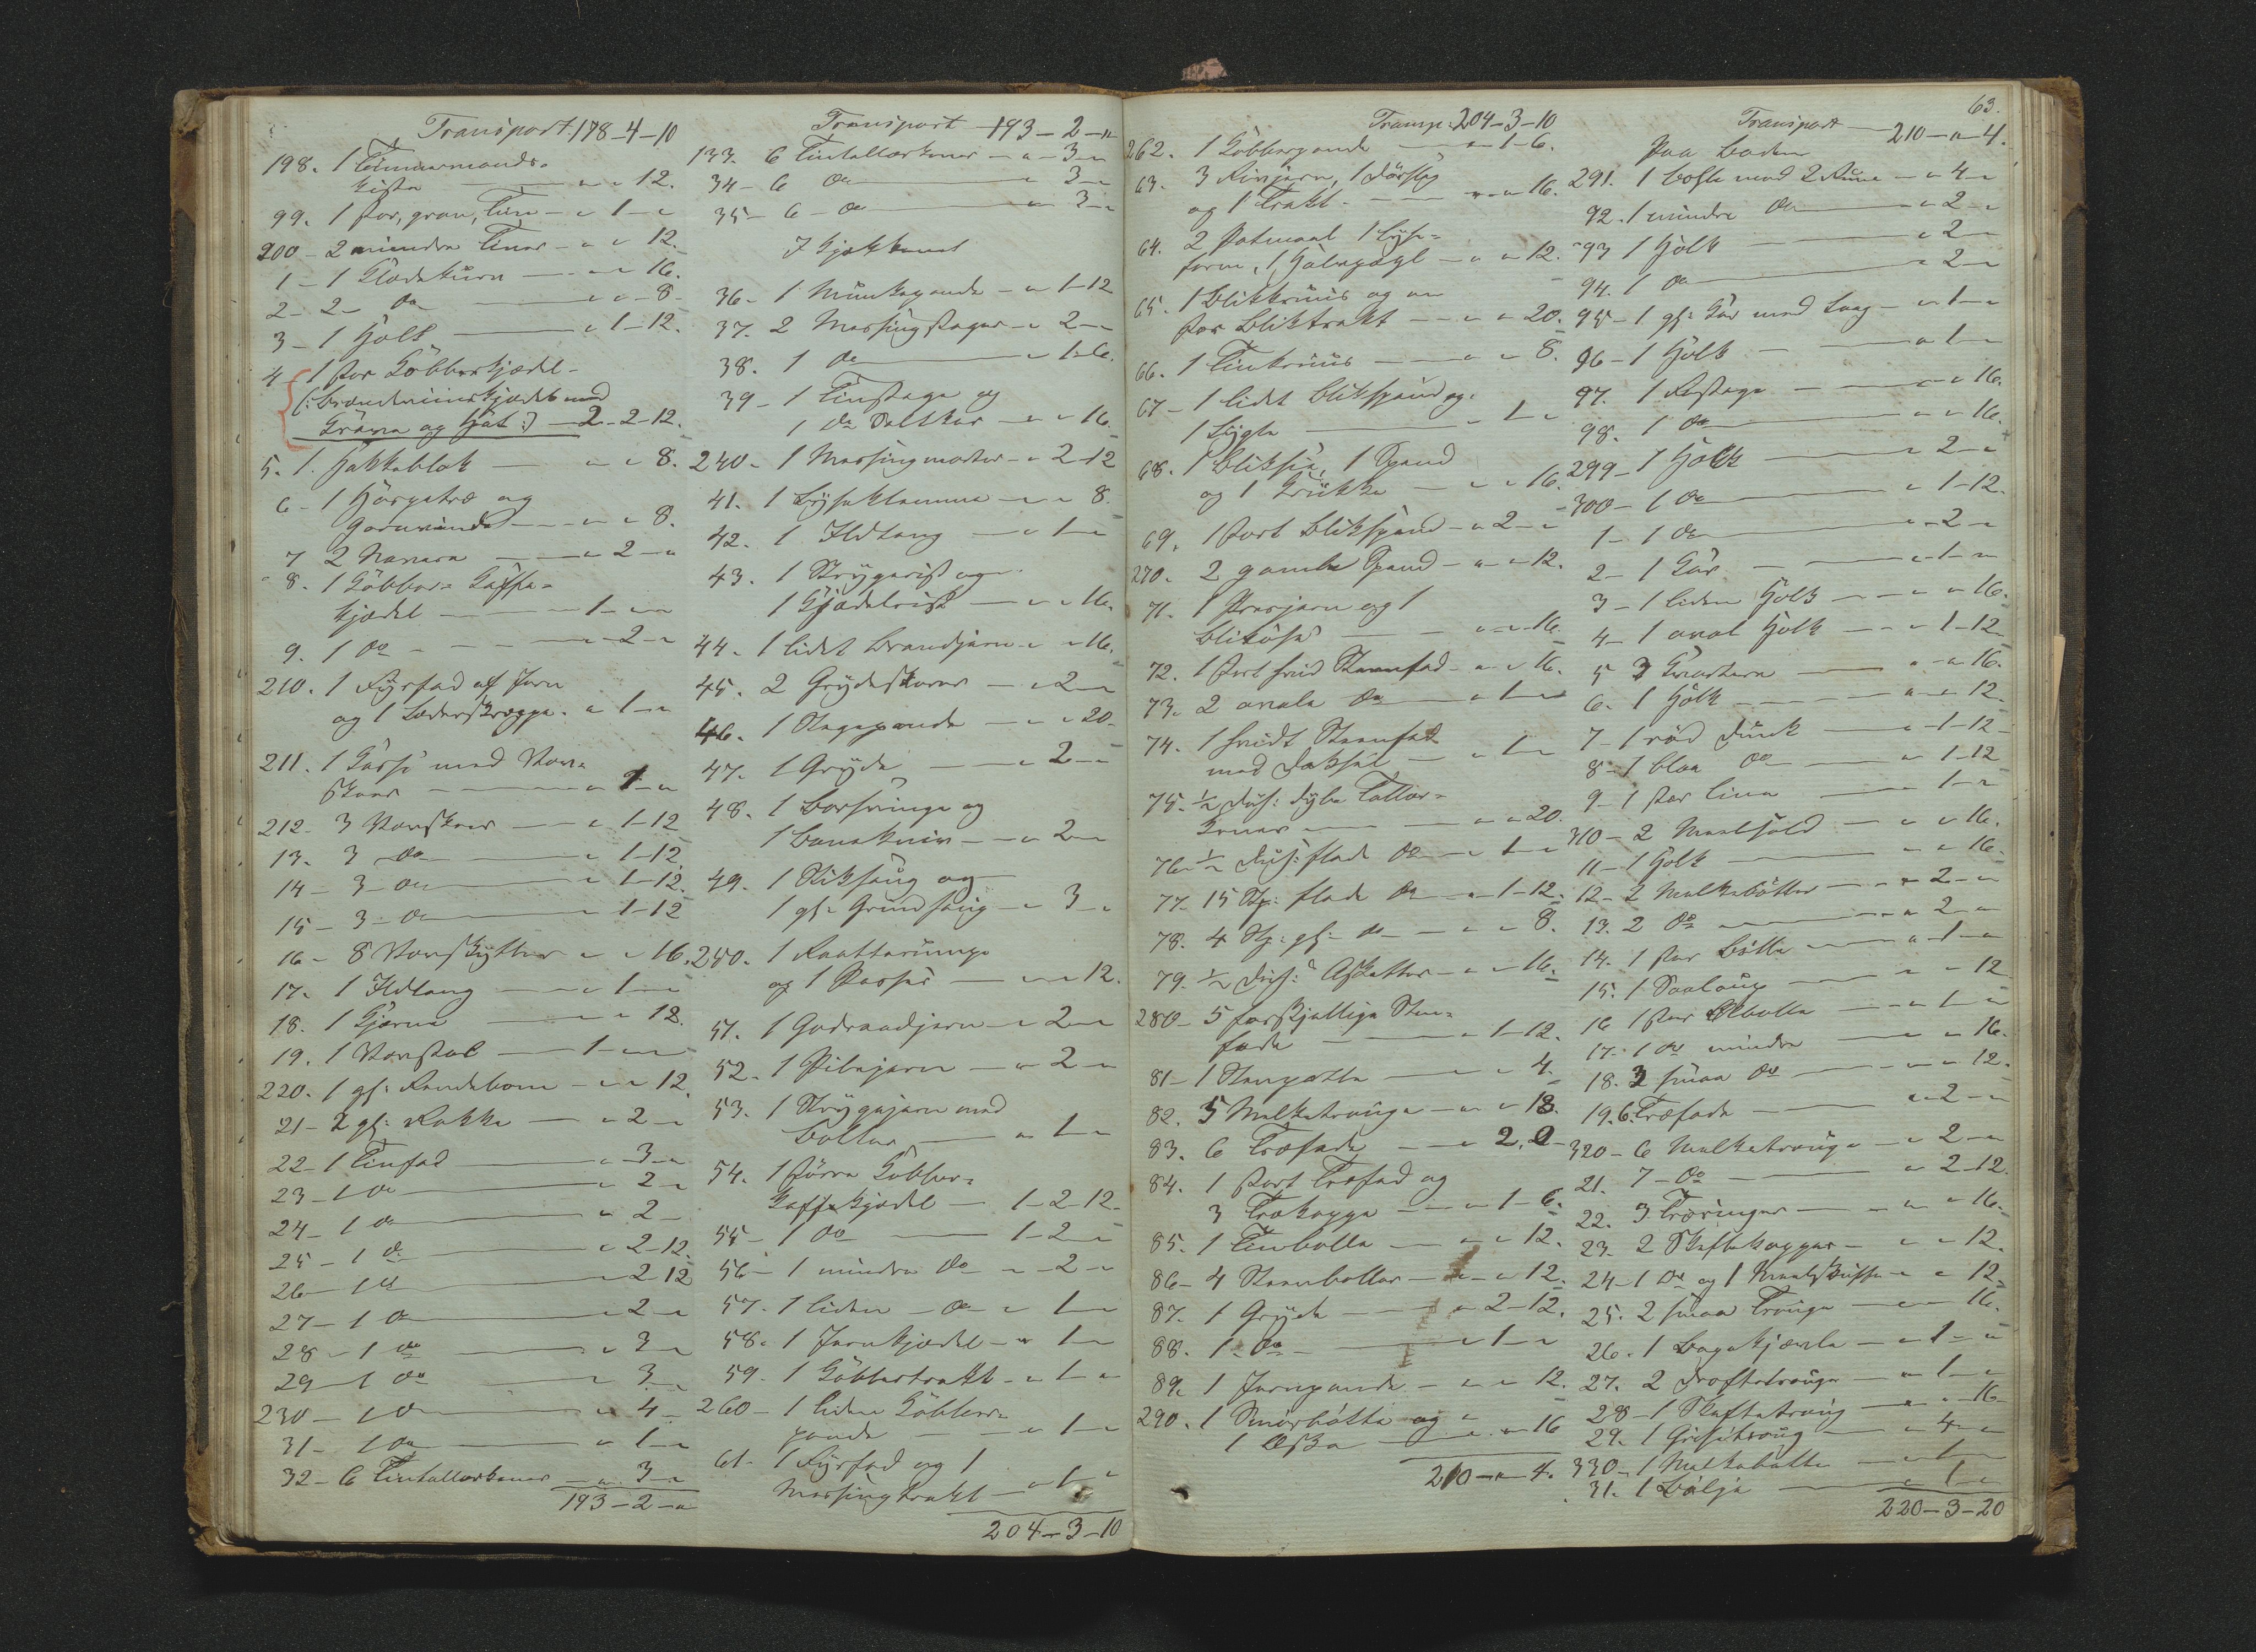 Transport 178-4-10
198. 1 Tømmermands-
kiste — " " 12.
99. 1 stor, grøn, Tine — " 1 — "
200 - 2 mindre Tiner — " " 12.
1 - 1 Klædekurv — " " 16.
2 - 2 do — " " 8.
3 - 1 Holk — " 1-12.
4 1 stor Kobberkjædel
(: Brændeviinskjædel med
og Hat :) — 2-2-12.
5. 1 Hakkeblok — " " 8.
6 - 1 Hørgetræ og
Garnvinde — " " 8.
7 2 Navere — " 2 — "
8. 1 Kobber- Kaffe-
kjædel — 1 — " "
9. 1 do — " 2 — "
210. 1 Fyrfad af Jern
og 1 Læderskræppe. " 1 — "
211. 1 Kasse med Vev-
skeer — " 1 — "
212 - 3 Vevskeer — " 1-12
13. 3 do — " 1-12.
14 - 3 - do — " 1-12.
15 - 3 - do — " 1-12
16 - 8 Vevskytler — " " 16.
17. 1 Ildtang — " 1 — "
18. 1 Kjerne — " " 18.
19. 1 Vevstol — 1 — " "
220. 1 gl: Rendebom — " " 12.
21 - 2 gl: Rokke — " 2 — "
22 - 1 Tinfad — " 3 — "
23 - 1 do — " 2 — "
24 - 1 do — " 2 —
25 - 1 do — " 2-12.
26 - 1 do — " 2 12
27 - 1 do — " 2 — "
28 - 1 do — " 3 — "
29 - 1 do — " 3 — "
230 - 1 do — " 4 —
31 - 1 do — " 1 — "
32 - 6 Tintallerkener — " 3 — "
193 - 2 - "
Transport 193 - 2 - "
133. 6 Tintallerkener — " 3 — "
34 - 6 do — " 3 — "
35 - 6 - do — " 3 — "
I Kjøkkenet
36 - 1 Munkepande — " 1-12
37. 2 Messingstager — " 2 — "
38. 1 do — " 1-6.
39 - 1 Tinstage og
1 do Saltkar — " " 16.
240 - 1 Messingmorter — " 2-12
41. 1 Lyseklemme — " " 8.
42. 1 Ildtang — " 1 — "
43. 1 Strygerist og
1 Kjædelrist — " " 16.
44. 1 lidet Brandjern " " 16.
45. 2 Grydeskorer — " 2 — "
46. 1 Stegepande — " " 20.
47. 1 Gryde — " 2 — "
48. 1 Borsvinge og
1 — " 2 — "
49. 1 Stiksaug og
1 gl: Grindsaug — " 3 — "
250. 1
og 1 Passer — " " 12.
51. 1 Goderaadjern — " 2 — "
52. 1 — " 2 — "
53. 1 Strygejern med
Bolter — " 1 — "
54. 1 større Kobber-
Kaffekjædel — 1-2-12.
55 - 1 do — 1-2 — "
56 - 1 mindre do — " 2 — "
57. 1 liden - do — " 1 — "
58. 1 Jernkjædel — " 1 — "
59. 1 Kobbertrakt — " 1 — "
260 - 1 liden Kobber-
pande — " 1 — "
61. 1 Fyrfad og 1
Messingtrakt — " 1 — "
204 - 3 - 10
Transp: 204-3-10
262. 1 Kobberpande — " 1-6.
63. 3 Rivjern, 1 Dørslag
og 1 Trakt. — " " 16.
64. 2 Potmaal 1 Lyse-
form, 1 Halvpægl — " " 12.
65. 1 Blikkruus og en
stor Bliktrakt — " " 20.
66. 1 Tinkruus — " " 8.
67 - 1 lidet Blikspand og
1 Lygte — " 1 — "
68. 1 Bliksie, 1 Spand
og 1 Krukke — " " 16.
69. 1 stort Blikspand — " 2 — "
270. 2 gamle Spand — " " 12.
71. 1 Presjern og 1
Blikøse — " " 16.
72. 1 stort hvid Steenfad — " " 16.
73. 2 ovale do — " 1 — "
74. 1 hvidt Steenfad
med Dæksel — " 1 — "
75. ½ Dus: dybe Taller-
kener — " " 20.
76 - ½ Dus: flade do — " 1 — "
77. 15 Stk: flade do — " 1-12.
78. 4 Stk: gl: do — " " 8.
79. ½ Dus: Asietter — " " 16.
280 - 5 forskjellige Steen-
fade — " 1-12.
81 - 1 Steenpotte — " " 4.
82. 5 Melketrouge — " " 18.
83. 6 Træfade — " 2. 0
84. 1 stort Træfad og
3 Trækoppe — " 1-6.
85. 1 Tinbolle — " " 12.
86 - 4 Steenboller — " " 12.
87. 1 Gryde — " 2-12.
88. 1 do — " 1 — "
89. 1 Jernpande — " " 12.
290. 1 Smørbøtte og
1 Æske — " " 16
210 - " - 4.
63.
Transport 210 - " - 4.
Paa Boden
291. 1 Bosle med 2 Rum — " 4 — "
92. 1 mindre do — " 2 — "
93 1 Holk — " 2 — "
94. 1 do — " 2 — "
95 - 1 gl: Kar med Laag — " 1 — "
96 - 1 Holk — " 1 —
97. 1 — " " 16.
98. 1 do — " " 16.
299 - 1 Holk — " 2 — "
300 - 1 do — " 1-12.
1 - 1 do — " 2 — "
2 - 1 Kar — " 1 — "
3 - 1 liden Holk — " " 16.
4 - 1 oval Holk — " 1-12.
5 3 Qvartere — " " 16.
6. 1 Holk — " " 12.
7 - 1 rød Dunk — " 1-12
8 - 1 blaa do — " 1-12
9 - 1 stor Tine — " 1 — "
310 - 2 Meelsold — " " 16.
11 - 1 Holk — " " 16.
12 - 2 Melkebøtter — " 2 — "
13. 2 do — " 2 — "
14. 1 stor Bøtte — " 1 — "
15. 1 — " " 12
16 1 stor Ølbolle — " 1 — "
17. 1 do mindre — " " 16.
18. 3 smaa do — " " 12.
19. 6 Træfade — " 2 — "
320 - 6 Melketrouge — " 2 — "
21. 7 - do — " 2-12.
22. 3 — " " 16.
23. 2 Skaftekopper — " " 12.
24 - 1 do og 1 Meelskuffe " " 12.
25. 2 smaa Trouge — " " 16.
26. 1 Bagekjævle — " 1 — "
27. 2 Drøftetrouge — " 1 — "
28 - 1 Skaftetroug — " " 16
29. 1 Grisetroug — " 4 — "
330 - 1 Melkebøtte — " 1 — "
31. 1 Balje — " 1 — "
220 - 3 - 20